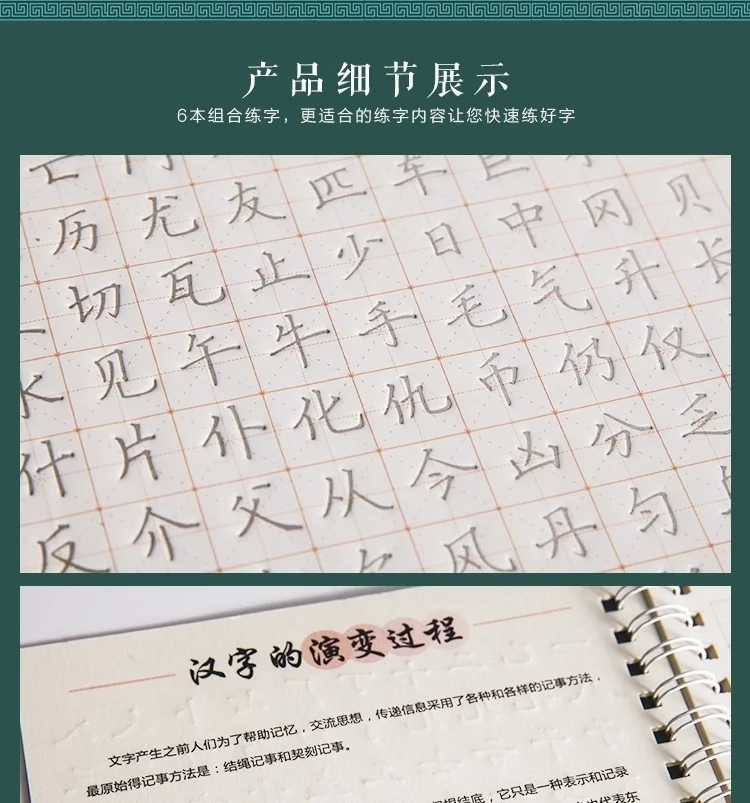 产品细节展示
6本组合练字，更适合的练字内容让您快速练好字
历尤友匹车巨
切瓦止少日中冈贝
见午牛手毛气升长
什片仆化仇币仍仅
反介父从今凶分乏
风丹匀
汉字的演变过程
文字产生之前人们为了帮助记忆，交流思想，传递信息采用了各种和各样的记事方法，
最原始得记事方法是：结绳记事和契刻记事。
绳结底，它只是一种表示和记录
代表东